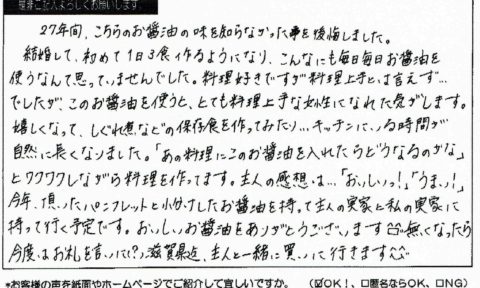 是非ご記入よろしくお願いします
27年間、こちらのお醤油の味を知らなかった事を後悔しました。
結婚して、初めて1日3食作るようになり、こんなにも毎日毎日お醤油を
使うなんて思っていませんでした。料理好きですが料理上手とは言えず…
でしたが、このお醤油を使うと、とても料理上手な女性になれた気がします。
嬉しくなって、しぐれ煮などの保存食を作ってみたり…キッチンにいる時間が
自然に長くなりました。「あの料理にこのお醤油を入れたらどうなるのかな」
とワクワクしながら料理を作ってます。主人の感想は…「おいしいっ!」「うまい!」
今年、頂いたパンフレットと小分けしたお醤油を持って主人の実家と私の実家に
持って行く予定です。おいしいお醤油をありがとうございます 無くなったら
今度はお礼を言いに(?)滋賀県迄、主人と一緒に買いに行きます
*お客様の声を紙面やホームページでご紹介して宜しいですか。 (☑OK!、□匿名ならOK、□NG)